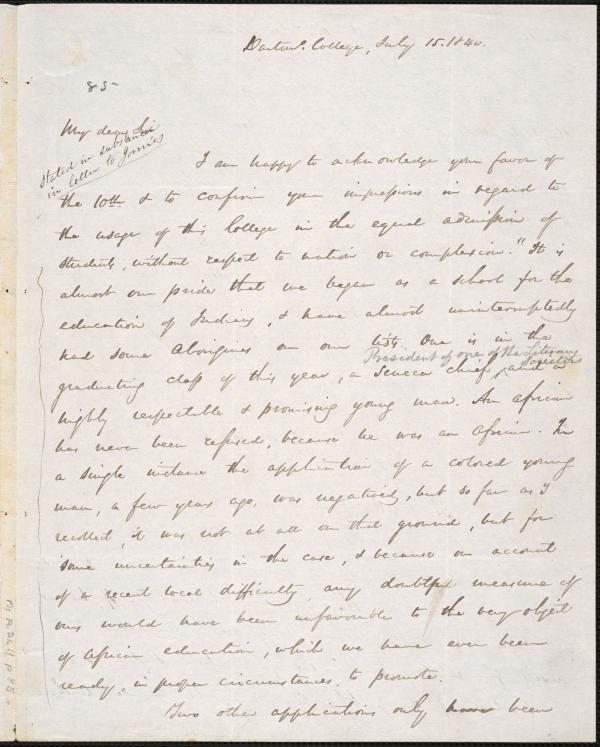 Dartmo. College, July 15. 1840.
85
My dear Sir
Stated in substance
in letter to Jonnies
I am happy to acknowledge your favor of
the 10th & to confirm your impressions in regard to
the usage of this College in the equal admission of
students, without respect to nation or complexion." It is
almost our pride that we began as a school for the
education of Indians, & have almost uninterruptedly
had some Aborigines on our lists. One is in the
President of one of the Literary
Societies
graduating class of this year, a Seneca chief, and a
highly respectable & promising young man. An african
has never been refused, because he was an African. In
a single instance the application of a colored young
man, a few years ago, was negatived, but so far as I
recollect, it was not at all on that ground, but for
some uncertainties in the case, & because on account
of a recent local difficulty, any doubtful measure of
ours would have been unfavorable to the very object
of African education, which we have ever been
ready, in proper circumstances, to promote.
Two other applications only have been